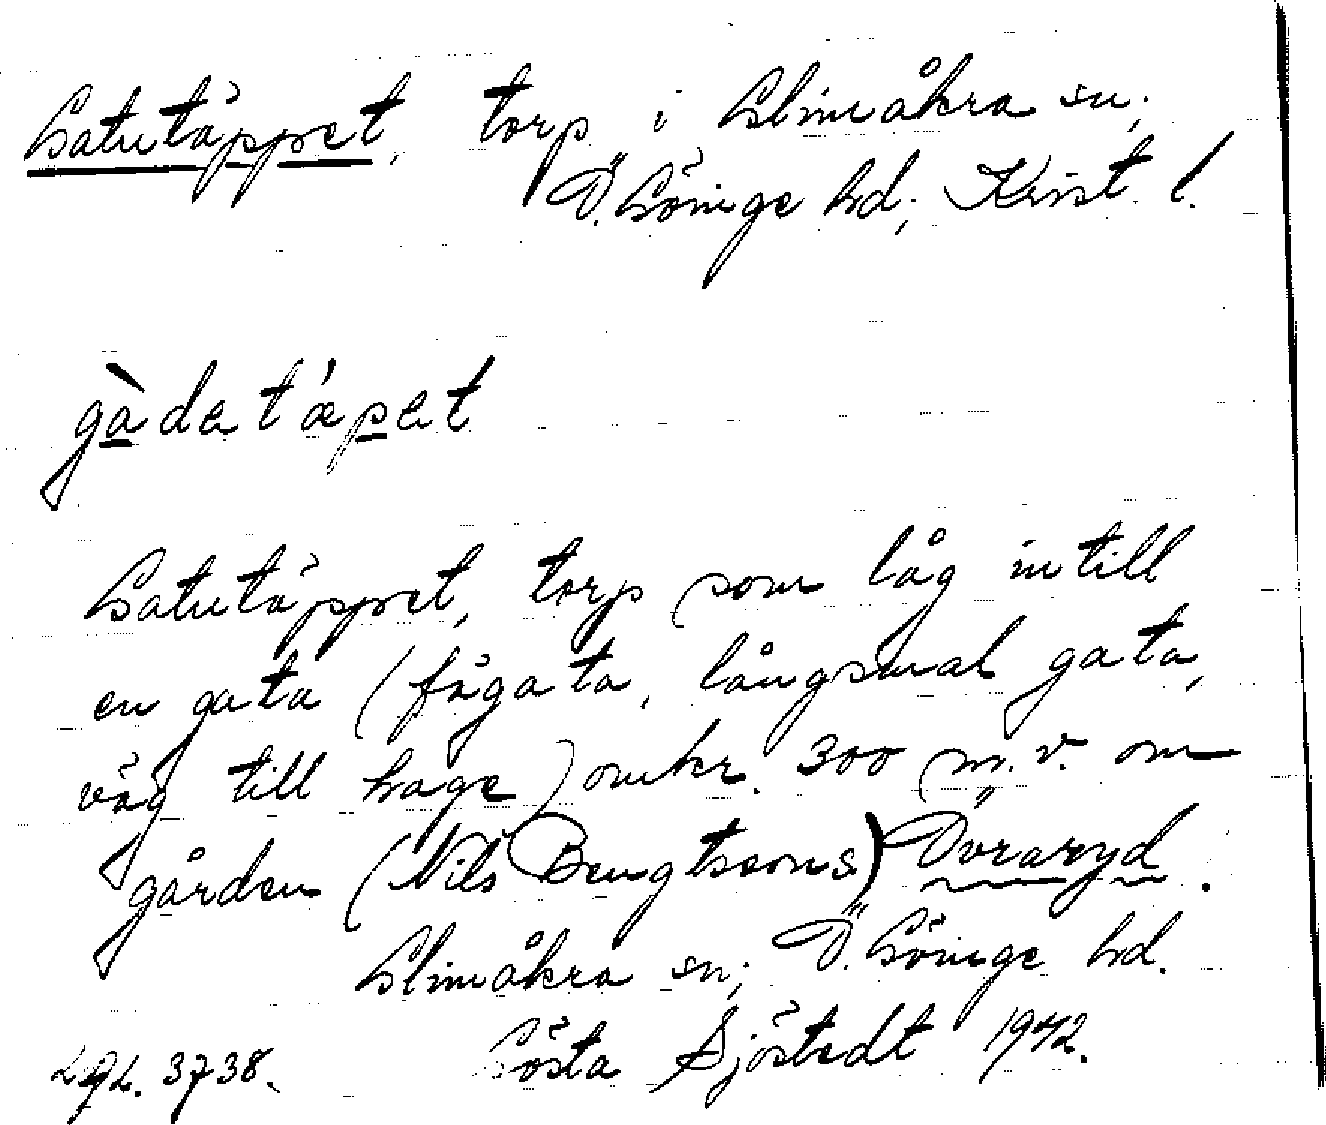 Gatutäppet, torp i Glimåkra sn;
Ö. Göinge hd; Krist. l.
gàdatápet
Gatutäppet, torp som låg intill
en gata (fägata, långsmal gata,
väg till hage) omkr. 300 m. v. om
gården (Nils Bengtssons) Övraryd.
Glimåkra sn; Ö. Göinge hd.
Gösta Sjöstedt 1942.
3738.